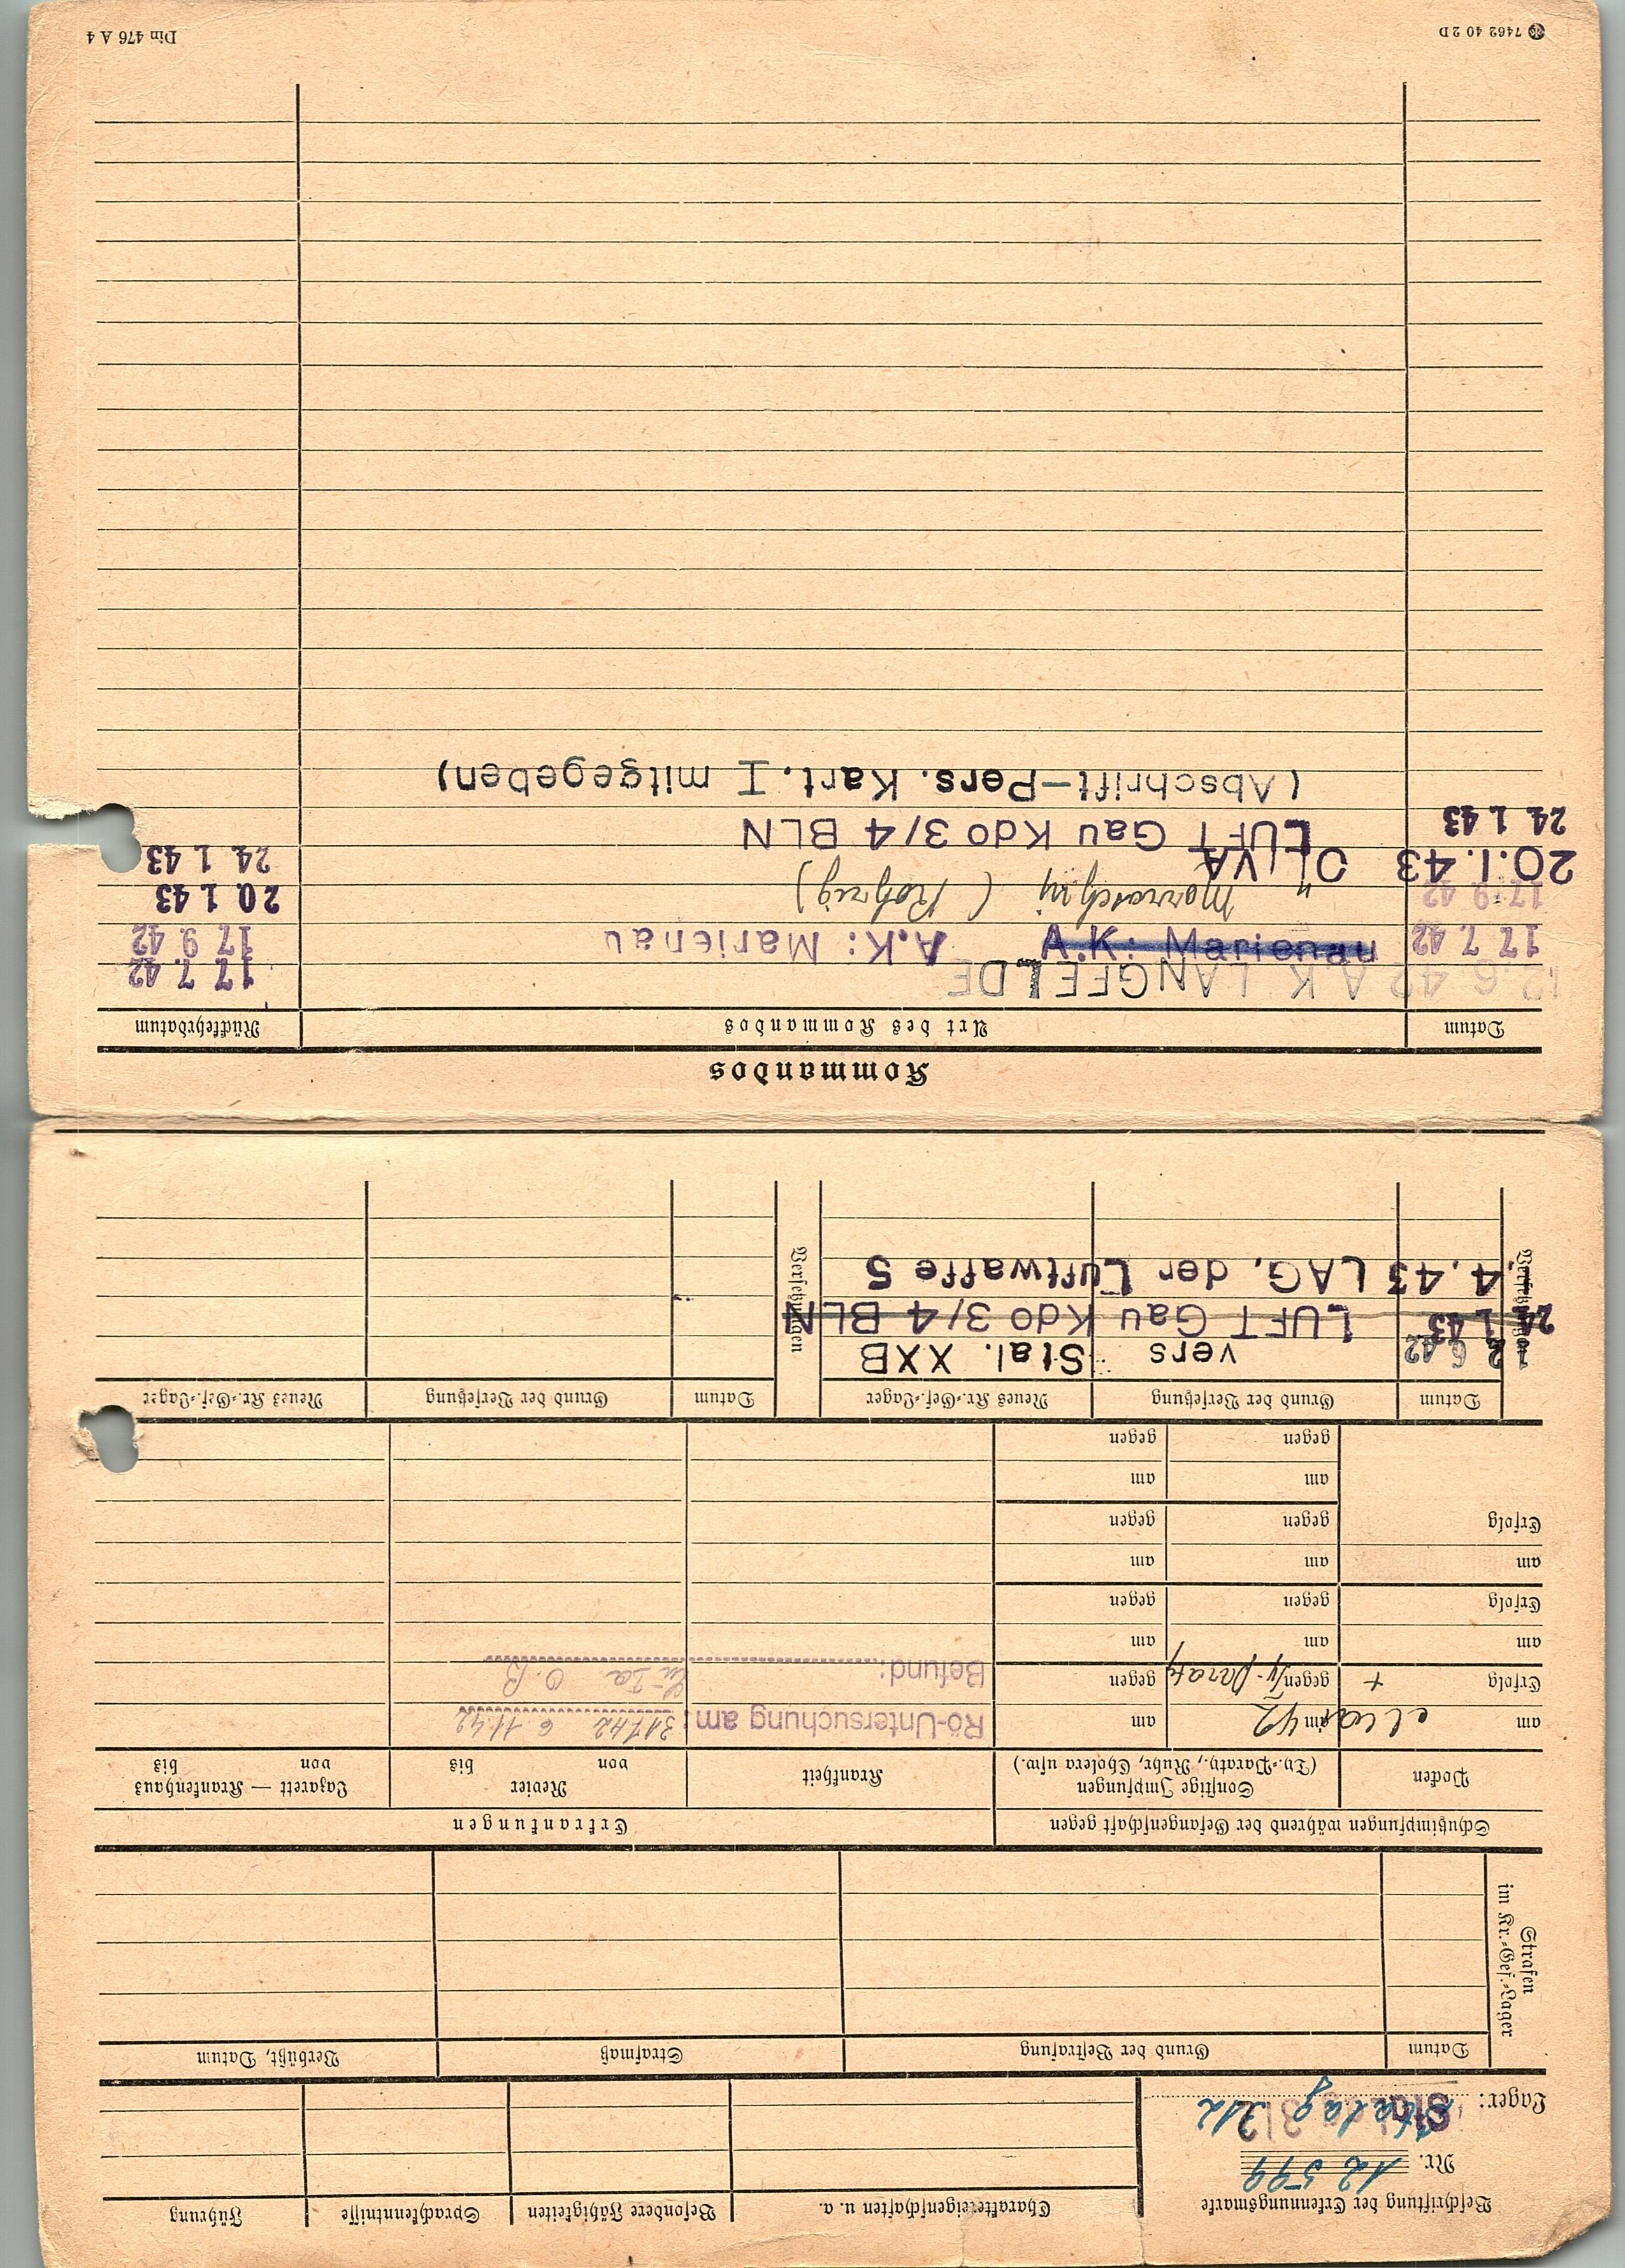 Beschriftung der Erkennungsmarke
Nr. 12 599
Lager: Stalag 312
Charaktereigenschaften u. a.
Besondere Fähigkeiten
Sprachkenntnisse
Führung
Strafen
im Kr.=Gef.=Lager
Datum
Grund der Bestrafung
Strafmaß
Verbüßt, Datum
Schutzimpfungen während der Gefangenschaft gegen
Erkrankungen
Pocken
Sonstige Impfungen
(Ty.=Paraty., Ruhr, Cholera usw.)
Krankheit
Revier
von bis
Lazarett — Krankenhaus
von bis
am am 42 am
Rö-Untersuchung am: 31742 6 11.42
Erfolg + gegen Ty-Paraty gegen
Befund: O.B
am am am
Erfolg gegen gegen
am am am
Erfolg gegen gegen
am am
gegen gegen
Versetzungen
Datum Grund der Versetzung Neues Kr.=Gef.=Lager
Versetzungen
Datum Grund der Versetzung Neues Kr.=Gef.=Lager
12 6 42 vers Stal. XXB
24 1 43 LUFT Gau Kdo 3/4 BLN
1.4.43 LAG. der Luftwaffe 5
Kommandos
Datum Art des Kommandos Rückkehrdatum
12.6 42 A K LANGFELDE 17 7 42
17 7 42 A.K: Marienau A.K: Marienau 17 9 42
17 9 42 " 20 1 43
20.1.43 OLIVA 24 1 43
24 1 43 LUFT Gau Kdo 3/4 BLN
(Abschrift-Pers. Kart. I mitgegeben)
7462 40 2 D
Din 476 A 4